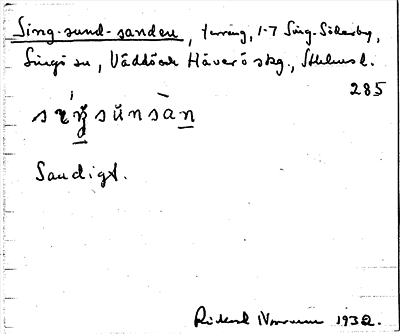 Sing-sund-sanden, terräng, 1-7 Sing-Söderby,
Singö sn, Väddö och Häverö skg., Sthlms l.
285
Sandigt.
Rickard 1932.